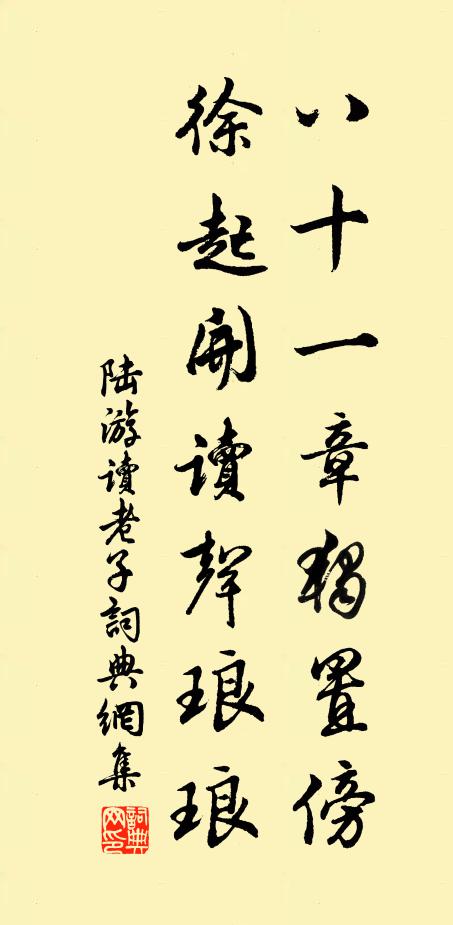 八十一章獨置傍
徐起開讀聲琅琅
陆游讀老子詞典網集
詞典
网印